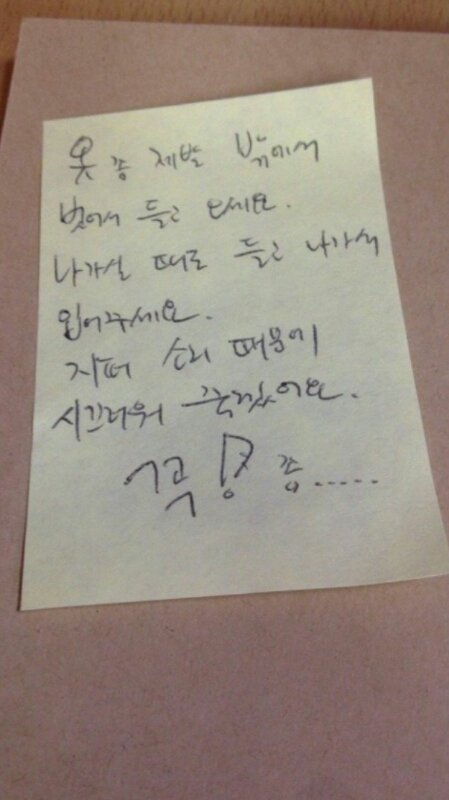 옷 좀 제발 밖에서
벗어서 들고 오세요.
나가실 때도 들고 나가서
입어주세요.
지퍼 소리 때문에
시끄러워 죽겠어요.
좀.....